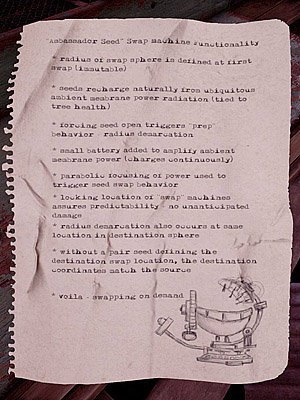 "Ambassador Seed" Swap machine Functionality
* radius of swap sphere is defined at first
swap (immutable)
* seeds recharge naturally from ubiquitous
ambient membrane power radiation (tied to
tree health)
* forcing seed open triggers "prep"
behavior - radius demarcation
* small battery added to amplify ambient
membrane power (charges continuously)
* parabolic focusing of power used to
trigger seed swap behavior
* locking location of "swap" machines
assures predictability - no unanticipated
damage
* radius demarcation also occurs at same
location in destination sphere
* without a pair seed defining the
destination swap location, the destination
coordinates match the source
* voila - swapping on demand